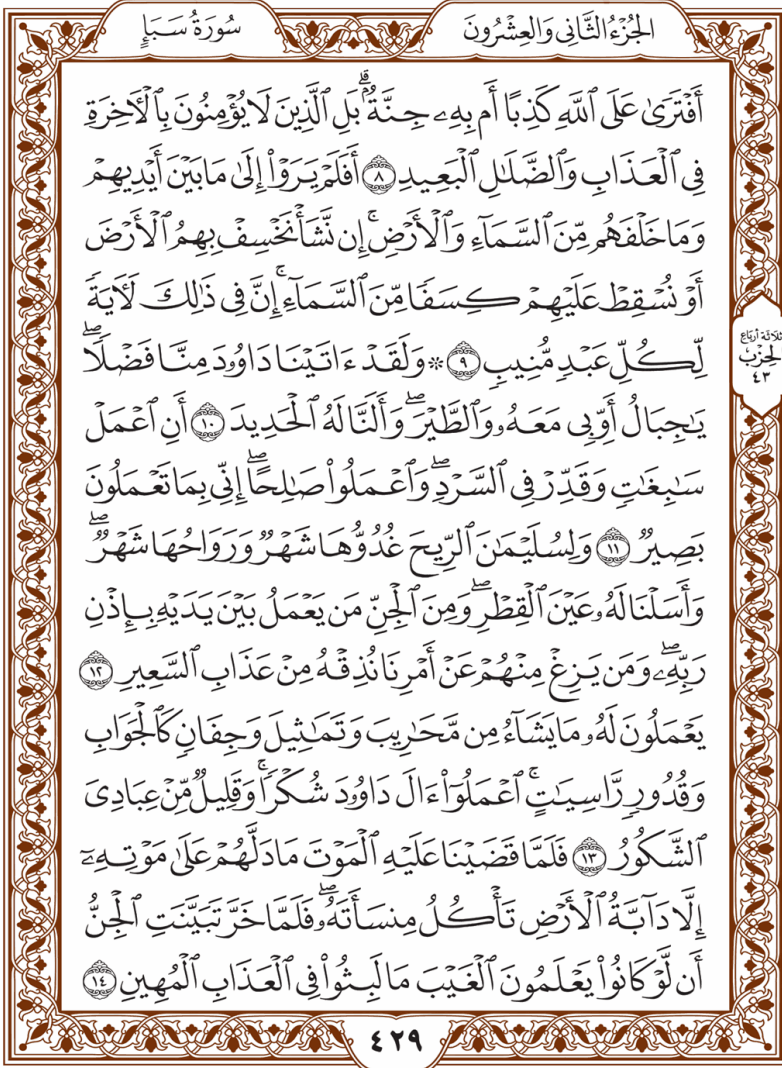 الجُزْءُ الثَّانِي وَالعِشْرُونَ
سُورَةُ سَبَإٍ
أَفۡتَرَىٰ عَلَى ٱللَّهِ كَذِبًا أَم بِهِۦ جِنَّةُۢۗ بَلِ ٱلَّذِينَ لَا يُؤۡمِنُونَ بِٱلۡأٓخِرَةِ
فِي ٱلۡعَذَابِ وَٱلضَّلَٰلِ ٱلۡبَعِيدِ ٨ أَفَلَمۡ يَرَوۡاْ إِلَىٰ مَا بَيۡنَ أَيۡدِيهِمۡ
وَمَا خَلۡفَهُم مِّنَ ٱلسَّمَآءِ وَٱلۡأَرۡضِۚ إِن نَّشَأۡ نَخۡسِفۡ بِهِمُ ٱلۡأَرۡضَ
أَوۡ نُسۡقِطۡ عَلَيۡهِمۡ كِسَفٗا مِّنَ ٱلسَّمَآءِۚ إِنَّ فِي ذَٰلِكَ لَأٓيَةٗ
لِّكُلِّ عَبۡدٖ مُّنِيبٖ ٩ ۞ وَلَقَدۡ ءَاتَيۡنَا دَاوُۥدَ مِنَّا فَضۡلٗاۖ
يَٰجِبَالُ أَوِّبِي مَعَهُۥ وَٱلطَّيۡرَۖ وَأَلَنَّا لَهُ ٱلۡحَدِيدَ ١٠ أَنِ ٱعۡمَلۡ
سَٰبِغَٰتٖ وَقَدِّرۡ فِي ٱلسَّرۡدِۖ وَٱعۡمَلُواْ صَٰلِحًاۖ إِنِّي بِمَا تَعۡمَلُونَ
بَصِيرٞ ١١ وَلِسُلَيۡمَٰنَ ٱلرِّيحَ غُدُوُّهَا شَهۡرٞ وَرَوَاحُهَا شَهۡرٞۖ
وَأَسَلۡنَا لَهُۥ عَيۡنَ ٱلۡقِطۡرِۖ وَمِنَ ٱلۡجِنِّ مَن يَعۡمَلُ بَيۡنَ يَدَيۡهِ بِإِذۡنِ
رَبِّهِۦۖ وَمَن يَزِغۡ مِنۡهُمۡ عَنۡ أَمۡرِنَا نُذِقۡهُ مِنۡ عَذَابِ ٱلسَّعِيرِ ١٢
يَعۡمَلُونَ لَهُۥ مَا يَشَآءُ مِن مَّحَٰرِيبَ وَتَمَٰثِيلَ وَجِفَانٖ كَٱلۡجَوَابِ
وَقُدُورٖ رَّاسِيَٰتٍۚ ٱعۡمَلُوٓاْ ءَالَ دَاوُۥدَ شُكۡرٗاۚ وَقَلِيلٞ مِّنۡ عِبَادِيَ
ٱلشَّكُورُ ١٣ فَلَمَّا قَضَيۡنَا عَلَيۡهِ ٱلۡمَوۡتَ مَا دَلَّهُمۡ عَلَىٰ مَوۡتِهِۦٓ
إِلَّا دَآبَّةُ ٱلۡأَرۡضِ تَأۡكُلُ مِنسَأَتَهُۥۖ فَلَمَّا خَرَّ تَبَيَّنَتِ ٱلۡجِنُّ
أَن لَّوۡ كَانُواْ يَعۡلَمُونَ ٱلۡغَيۡبَ مَا لَبِثُواْ فِي ٱلۡعَذَابِ ٱلۡمُهِينِ ١٤
ثلاثة أرباع
الحزب
٤٣
٤٢٩